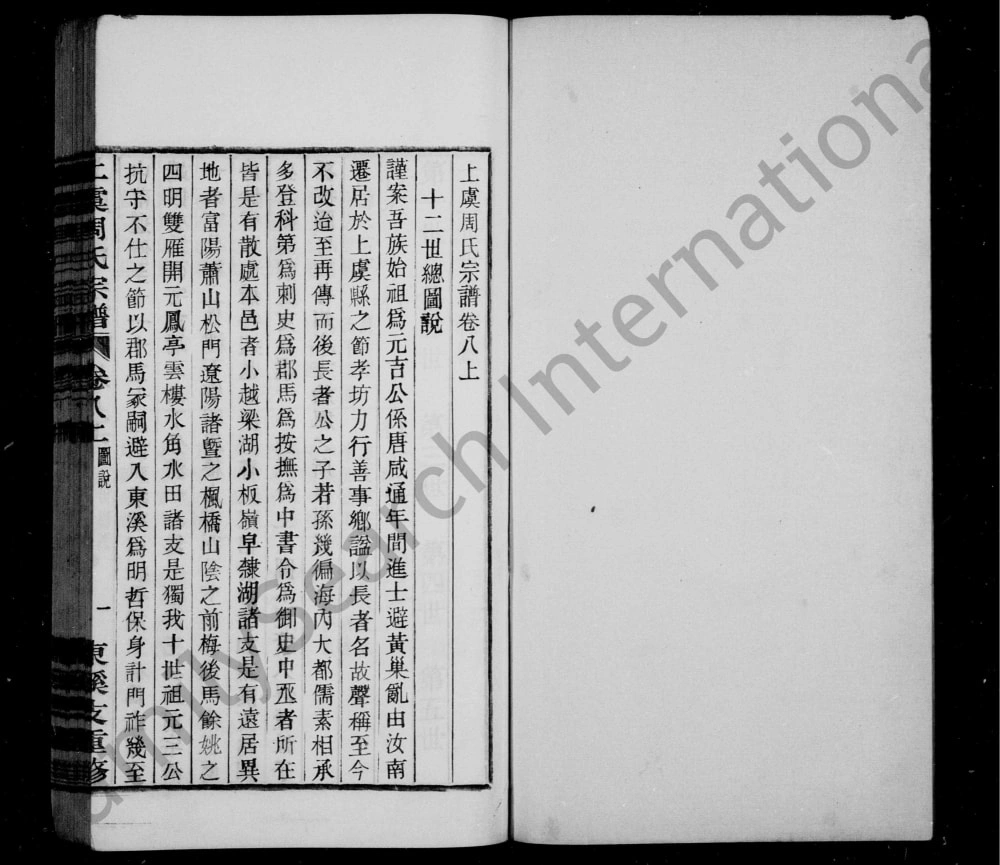 上虞周氏宗譜卷八上
十二世總圖說
謹案吾族始祖爲元吉公係唐咸通年間進士避黃巢亂由汝南
遷居於上虞縣之節孝坊力行善事鄉謚以長者名故聲稱至今
不改迨至再傳而後長者公之子若孫幾徧海內大都儒素相承
多登科第爲刺史爲郡馬爲按撫爲中書令爲御史中丞者所在
皆是有散處本邑者小越梁湖小板嶺皁隸湖諸支是有遠居異
地者富陽蕭山松門遼陽諸暨之楓橋山陰之前梅後馬餘姚之
四明雙雁開元鳳亭雲樓水角水田諸支是獨我十世祖元三公
抗守不仕之節以郡馬冢嗣避入東溪爲明哲保身計門祚幾至
上虞周氏宗譜 卷八上 圖說 一 東溪支重修
FamilySearch International